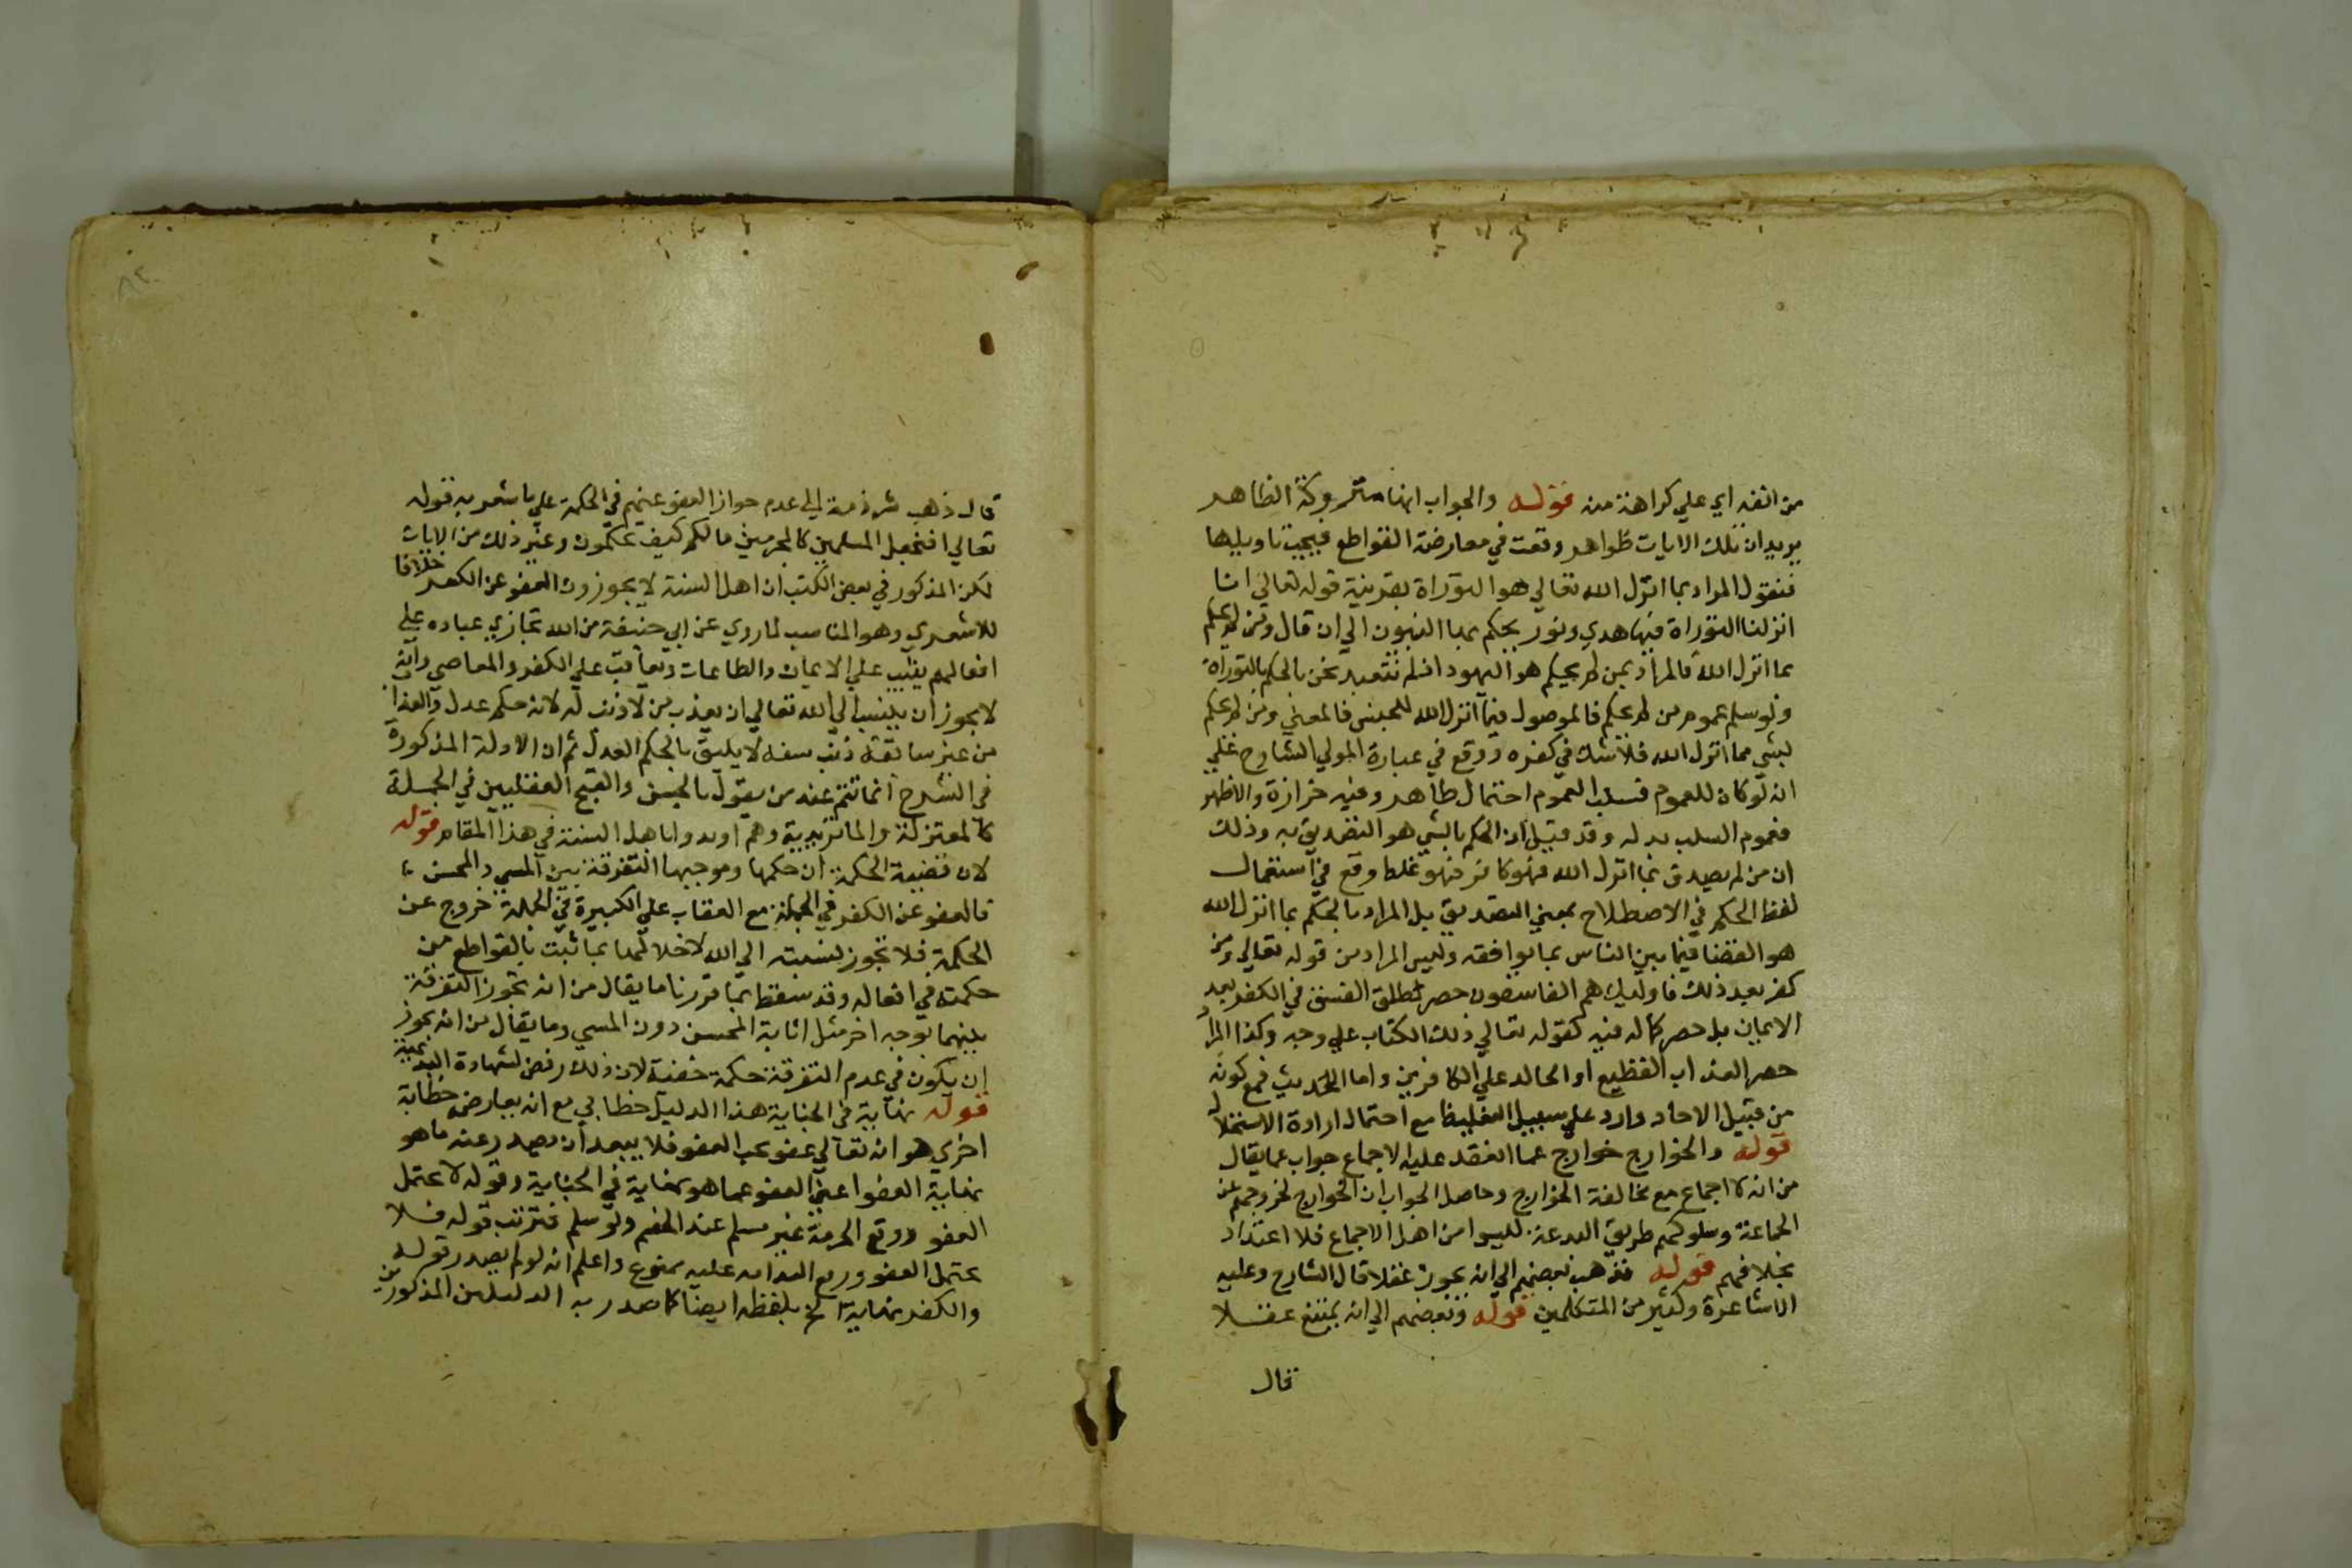 من انفه اي علي كراهة منه قوله والجواب انها متروكة الظاهر
يريد ان تلك الايات ظواهر وقعت في معارضة القواطع فيجب تاويلها
فنقول المراد بما انزل الله تعالي هو التوراة بقرينة قوله تعالي انا
انزلنا التوراة فيها هدي ونور يحكم بها النبيون الي ان قال ومن لم يحكم
بما انزل الله فالمراد بمن لم يحكم هو اليهود اذ لم نتعبد نحن بالحكم بالتوراة
ولو سلم عموم من لم يحكم فالموصول فيما انزل الله للجنس فالمعني ومن لم يحكم
بشي مما انزل الله فلا شك في كفره ووقع في عبارة المولي الشارح علي
انه لو كان للعموم فسلب العموم احتمال ظاهر وفيه حزازة والاظهر
فعموم السلب بدله وقد قيل ان الحكم بالشي هو التصديق به وذلك
ان من لم يصدق بما انزل الله فهو كافر فهو غلط وقع في استعمال
لفظ الحكم في الاصطلاح بمعني التصديق بل المراد بالحكم بما انزل الله
هو القضا فيما بين الناس بما يوافقه وليس المراد من قوله تعالي ومن
كفر بعد ذلك فاوليك هم الفاسقون حصر مطلق الفسق في الكفر بعد
الايمان بل حصر كماله فيه كقوله تعالي ذلك الكتاب علي وجه وكذا المراد
حصر العذاب الفظيع او الخالد علي الكافرين واما الحديث فمع كونه
من قبيل الاحاد وارد علي سبيل التغليظ مع احتمال ارادة الاستحلال
قوله والخوارج خوارج عما انعقد عليه الاجماع جواب عما يقال
من انه لا اجماع مع مخالفة الخوارج وحاصل الجواب ان الخوارج لخروجهم عن
الجماعة وسلوكهم طريق البدعة ليسوا من اهل الاجماع فلا اعتداد
بخلافهم قوله فذهب بعضهم الي انه يجوز عقلا قال الشارح وعليه
الاشاعرة وكثير من المتكلمين قوله وبعضهم الي انه يمتنع عقلا
قال
قال ذهب شرذمة الي عدم جواز العفو عنهم في الحكمة علي ما يشعر به قوله
تعالي افنجعل المسلمين كالمجرمين ما لكم كيف تحكمون وغير ذلك من الايات
لكن المذكور في بعض الكتب ان اهل السنة لا يجوزون العفو عن الكفر خلافا
للاشعري وهو المناسب لما روي عن ابي حنيفة من الله تجازي عباده علي
افعالهم يثيب علي الايمان والطاعات ويعاقب علي الكفر والمعاصي وانه
لا يجوز ان ينسب الي الله تعالي ان يعذب من لا ذنب له لانه حكم عدل والعذاب
من غير سابقة ذنب سفه لا يليق بالحكم العدل ثم ان الادلة المذكورة
في الشرح انما تتم عند من يقول بالحسن والقبح العقليين في الجملة
كالمعتزلة والماتريدية وهم ارادوا باهل السنة في هذا المقام قوله
لان قضية الحكمة ان حكمها وموجبها التفرقة بين المسي والمحسن
فالعفو عن الكفر في الجملة مع العقاب علي الكبيرة في الجملة خروج عن
الحكمة فلا تجوز نسبته الي الله لاخلالها بما ثبت بالقواطع من
حكمته في افعاله وقد سقط بما قررنا ما يقال من انه تجوز التفرقة
بينهما بوجه اخر مثل اثابة المحسن دون المسي وما يقال من انه يجوز
ان يكون في عدم التفرقة حكمة خفية لان ذلك رفض لشهادة البديهية
قوله نهاية في الجناية هذا الدليل خطابي مع انه يعارض خطابة
اخري هو انه تعالي عفو يحب العفو فلا يبعد ان يصدر عنه ما هو
نهاية العفو اعني العفو عما هو نهاية في الجناية وقوله لا يحتمل
العفو ورفع الحرمة غير مسلم عند الخصم ولو سلم فترتب قوله فلا
يحتمل العفو ورفع الغرامة عليه ممنوع واعلم انه لو لم يصدر قوله
والكفر نهاية الخ بلفظه ايضا كما صدر به الدليلين المذكورين